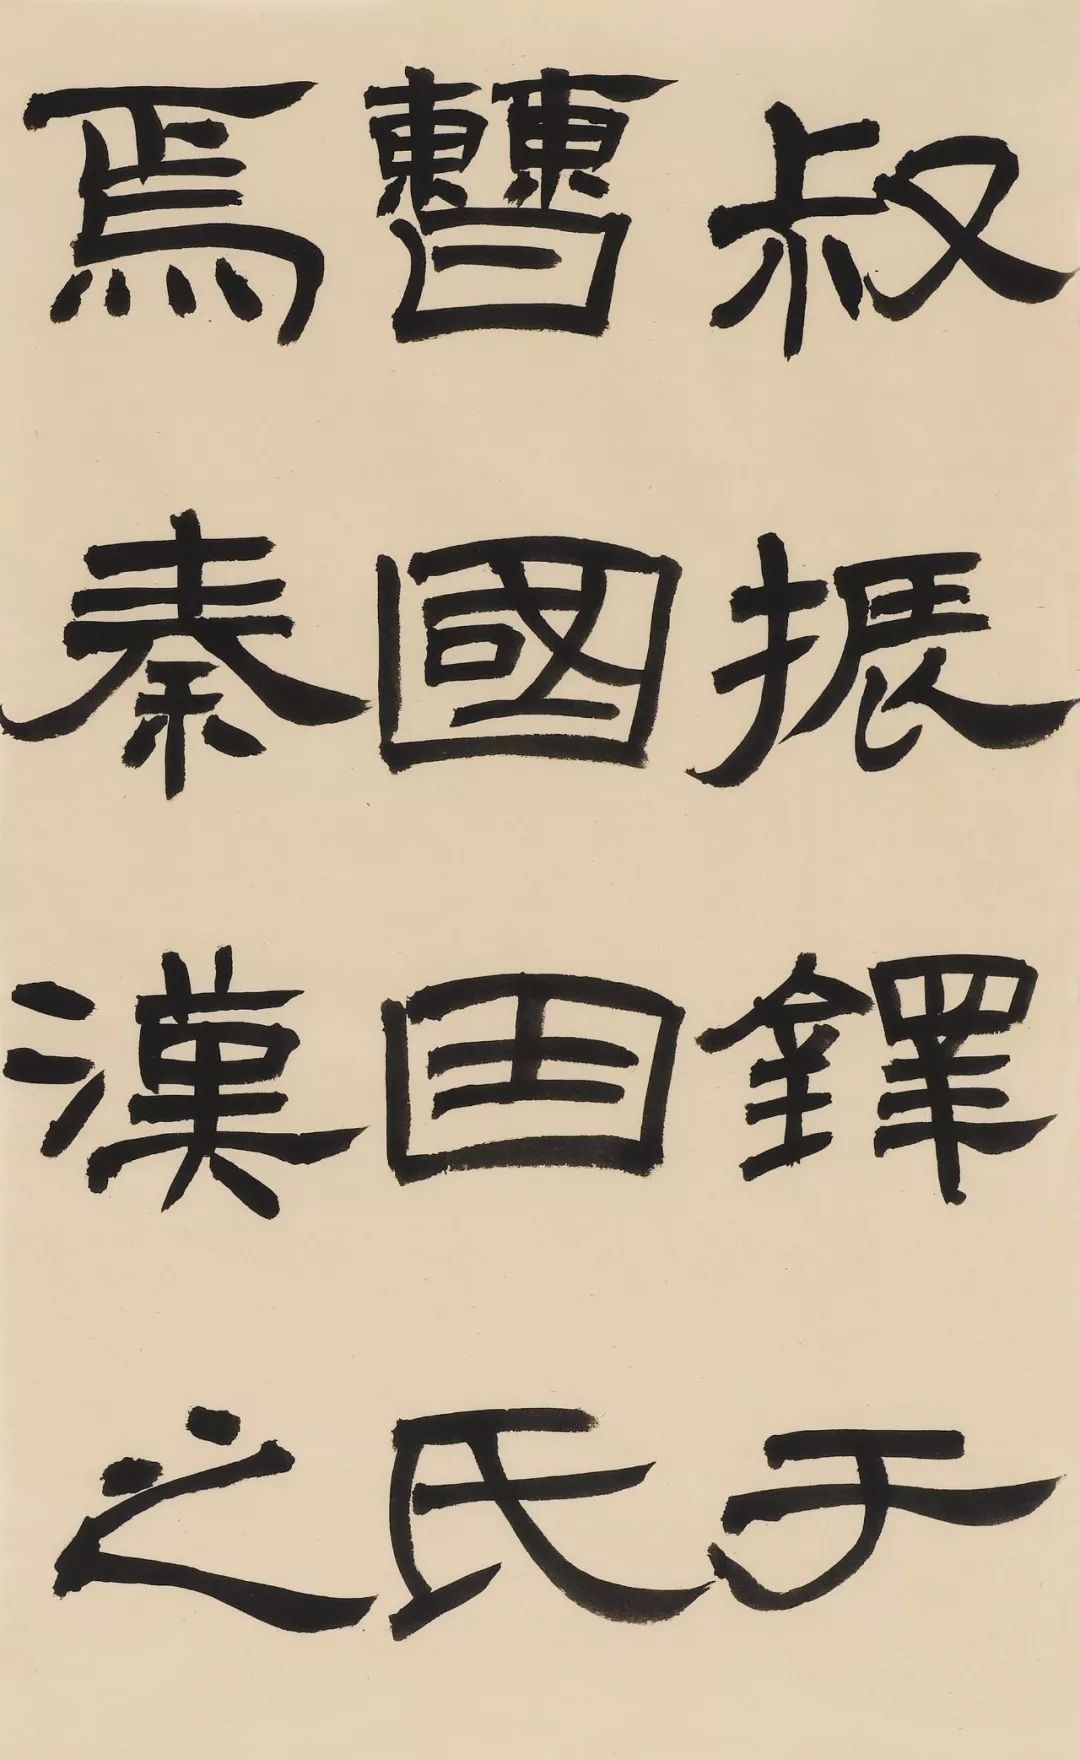 叔振鐸于
曹國因氏
焉秦漢之